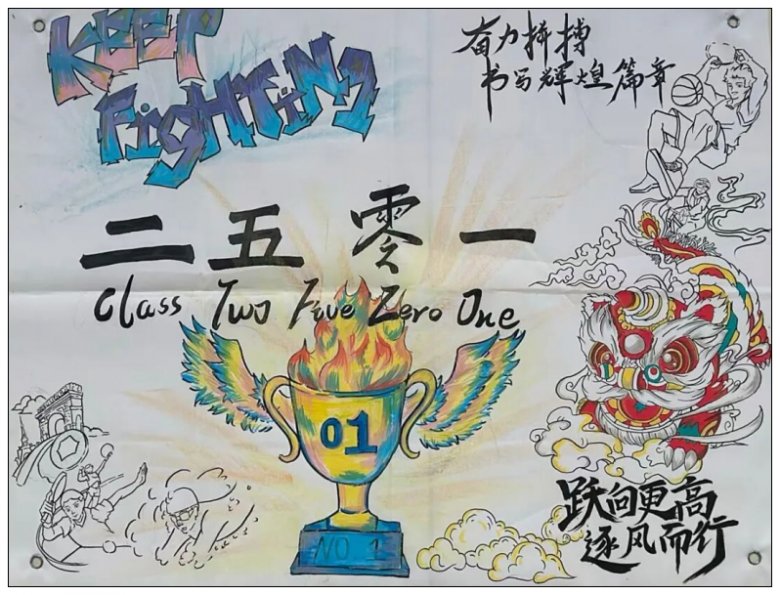 KEEP
FigHTiNG
奋力拼搏
书写辉煌篇章
二五零一
Class Two Five Zero One
01
NO 1
跃向更高
逐风而行